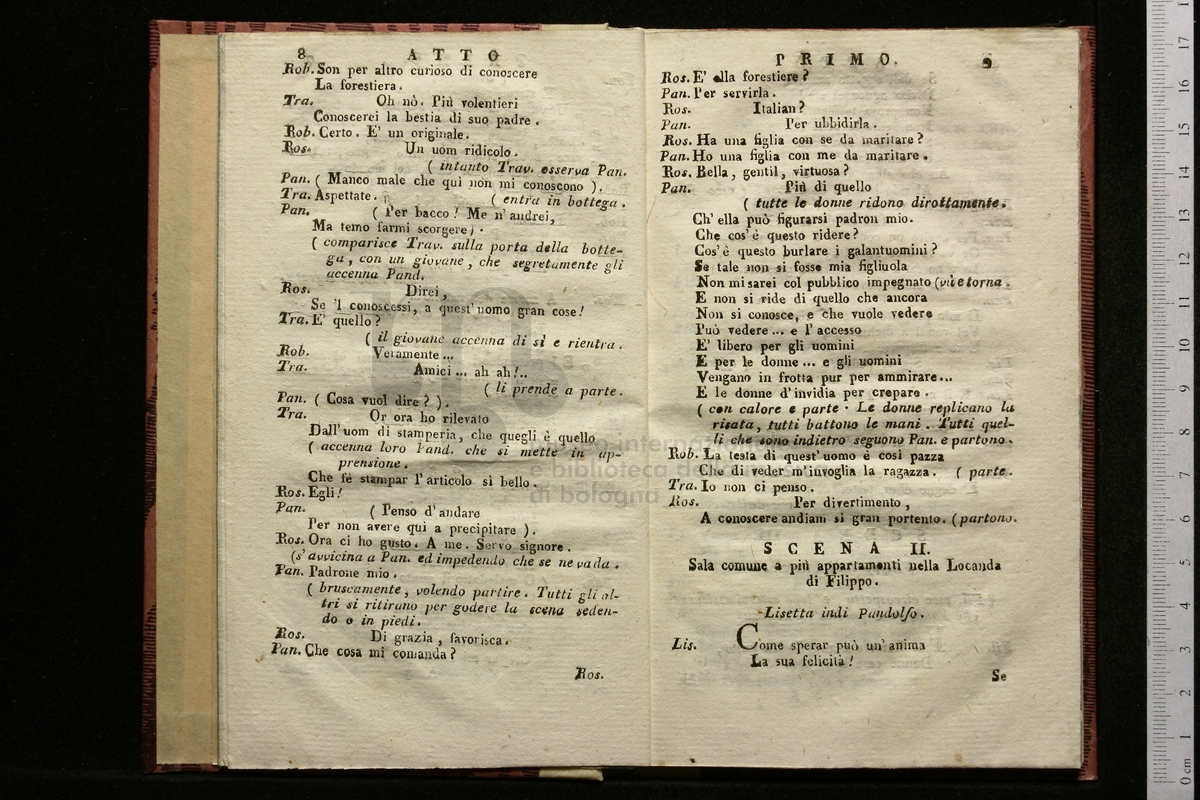 8 ATTO
Rob. Son per altro curioso di conoscere
La forestiera.
Tra. Oh nò. Più volentieri
Conoscerei la bestia di suo padre.
Rob. Certo. E' un originale.
Ros. Un uom ridicolo.
( intanto Trav. osserva Pan.
Pan. ( Manco male che quì non mi conoscono ).
Tra. Aspettate. ( entra in bottega.
Pan. ( Per bacco! Me n'andrei,
Ma temo farmi scorgere).
( comparisce Trav. sulla porta della botte-
ga, con un giovane, che segretamente gli
accenna Pand.
Ros. Direi,
Se 'l conoscessi, a quest'uomo gran cose!
Tra. E' quello?
( il giovane accenna di sì e rientra.
Rob. Veramente ...
Tra. Amici ... ah ah!..
( li prende a parte.
Pan. ( Cosa vuol dire? ).
Tra. Or ora ho rilevato
Dall'uom di stamperia, che quegli è quello
( accenna loro Pand. che si mette in ap-
prensione.
Che fè stampar l'articolo sì bello.
Ros. Egli!
Pan. ( Penso d'andare
Per non avere qui a precipitare ).
Ros. Ora ci ho gusto. A me. Servo signore.
(s'avvicina a Pan. ed impedendo che se ne vada.
Pan. Padrone mio.
( bruscamente, volendo partire. Tutti gli al-
tri si ritirano per godere la scena seden-
do o in piedi.
Ros. Di grazia, favorisca.
Pan. Che cosa mi comanda?
Ros.
PRIMO. 9
Ros. E' ella forestiere?
Pan. Per servirla.
Ros. Italian?
Pan. Per ubbidirla.
Ros. Ha una figlia con se da maritare?
Pan. Ho una figlia con me da maritare.
Ros. Bella, gentil, virtuosa?
Pan. Più di quello
( tutte le donne ridono dirottamente.
Ch'ella può figurarsi padron mio.
Che cos'è questo ridere?
Cos'è questo burlare i galantuomini?
Se tale non si fosse mia figliuola
Non mi sarei col pubblico impegnato (và e torna.
E non si ride di quello che ancora
Non si conosce, e che vuole vedere
Può vedere ... e l'accesso
E' libero per gli uomini
E per le donne ... e gli uomini
Vengano in frotta pur per ammirare...
E le donne d'invidia per crepare.
( con calore e parte. Le donne replicano la
risata, tutti battono le mani. Tutti quel-
li che sono indietro seguono Pan. e partono.
Rob. La testa di quest'uomo è così pazza
Che di veder m'invoglia la ragazza. ( parte.
Tra. Io non ci penso.
Ros. Per divertimento,
A conoscere andiam sì gran portento. (partono.
SCENA II.
Sala comune a più appartamenti nella Locanda
di Filippo.
Lisetta indi Pandolfo.
Lis. Come sperar può un'anima
La sua felicità!
Se